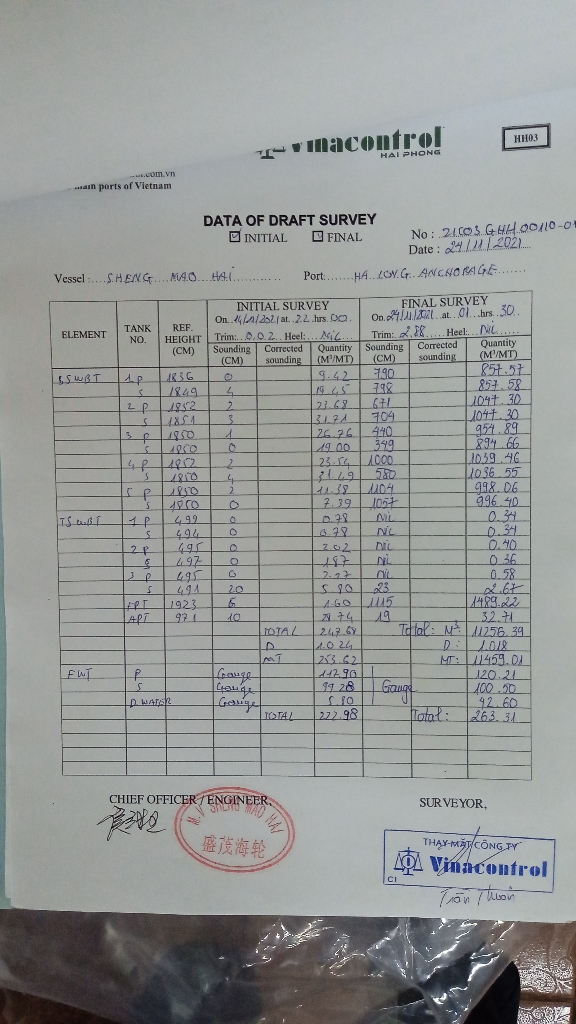 Vinacontrol
HAI PHONG
HH03
.com.vn
main ports of Vietnam
DATA OF DRAFT SURVEY
☑ INITIAL ☑ FINAL
No : 21C03GHH00110-01
Date : 24/11/2021
Vessel : SHENG MAO HAI Port: HA LONG ANCHORAGE
ELEMENT TANK NO. REF. HEIGHT (CM) INITIAL SURVEY FINAL SURVEY
On 14/11/2021 at 22 hrs 00 On 24/11/2021 at 01 hrs 30
Trim: 0.02 Heel: Nil Trim: 2.88 Heel: Nil
Sounding (CM) Corrected sounding Quantity (M³/MT) Sounding (CM) Corrected sounding Quantity (M³/MT)
BSWBT 1 P 1836 0 9.42 790 857.57
S 1849 4 19.45 798 857.58
2 P 1852 2 23.68 671 1047.30
S 1851 3 31.71 704 1047.30
3 P 1850 1 26.76 440 959.89
S 1850 0 19.00 349 894.66
4 P 1852 2 23.54 1000 1039.46
S 1850 4 31.49 580 1036.55
5 P 1850 2 11.38 1104 998.06
S 1850 0 7.39 1057 996.40
TSWBT 1 P 499 0 0.78 Nil 0.34
S 494 0 0.78 Nil 0.34
2 P 495 0 2.02 Nil 0.40
S 497 0 1.87 Nil 0.36
3 P 495 0 2.27 Nil 0.58
S 491 20 5.80 23 2.67
FPT 1923 6 1.60 1115 1489.22
APT 971 10 28.74 19 32.71
TOTAL 247.68 Total: M³: 11256.39
D 1.024 D : 1.018
MT 253.62 MT: 11459.01
FWT P Gauge 117.90 Gauge 120.21
S Gauge 99.28 100.50
D.WATER Gauge 5.80 42.60
TOTAL 222.98 Total: 263.31
CHIEF OFFICER / ENGINEER,
SURVEYOR,
M.V SHENG MAO HAI
盛茂海轮
THAY MẶT CÔNG TY
Vinacontrol
CI
Trần Thuận